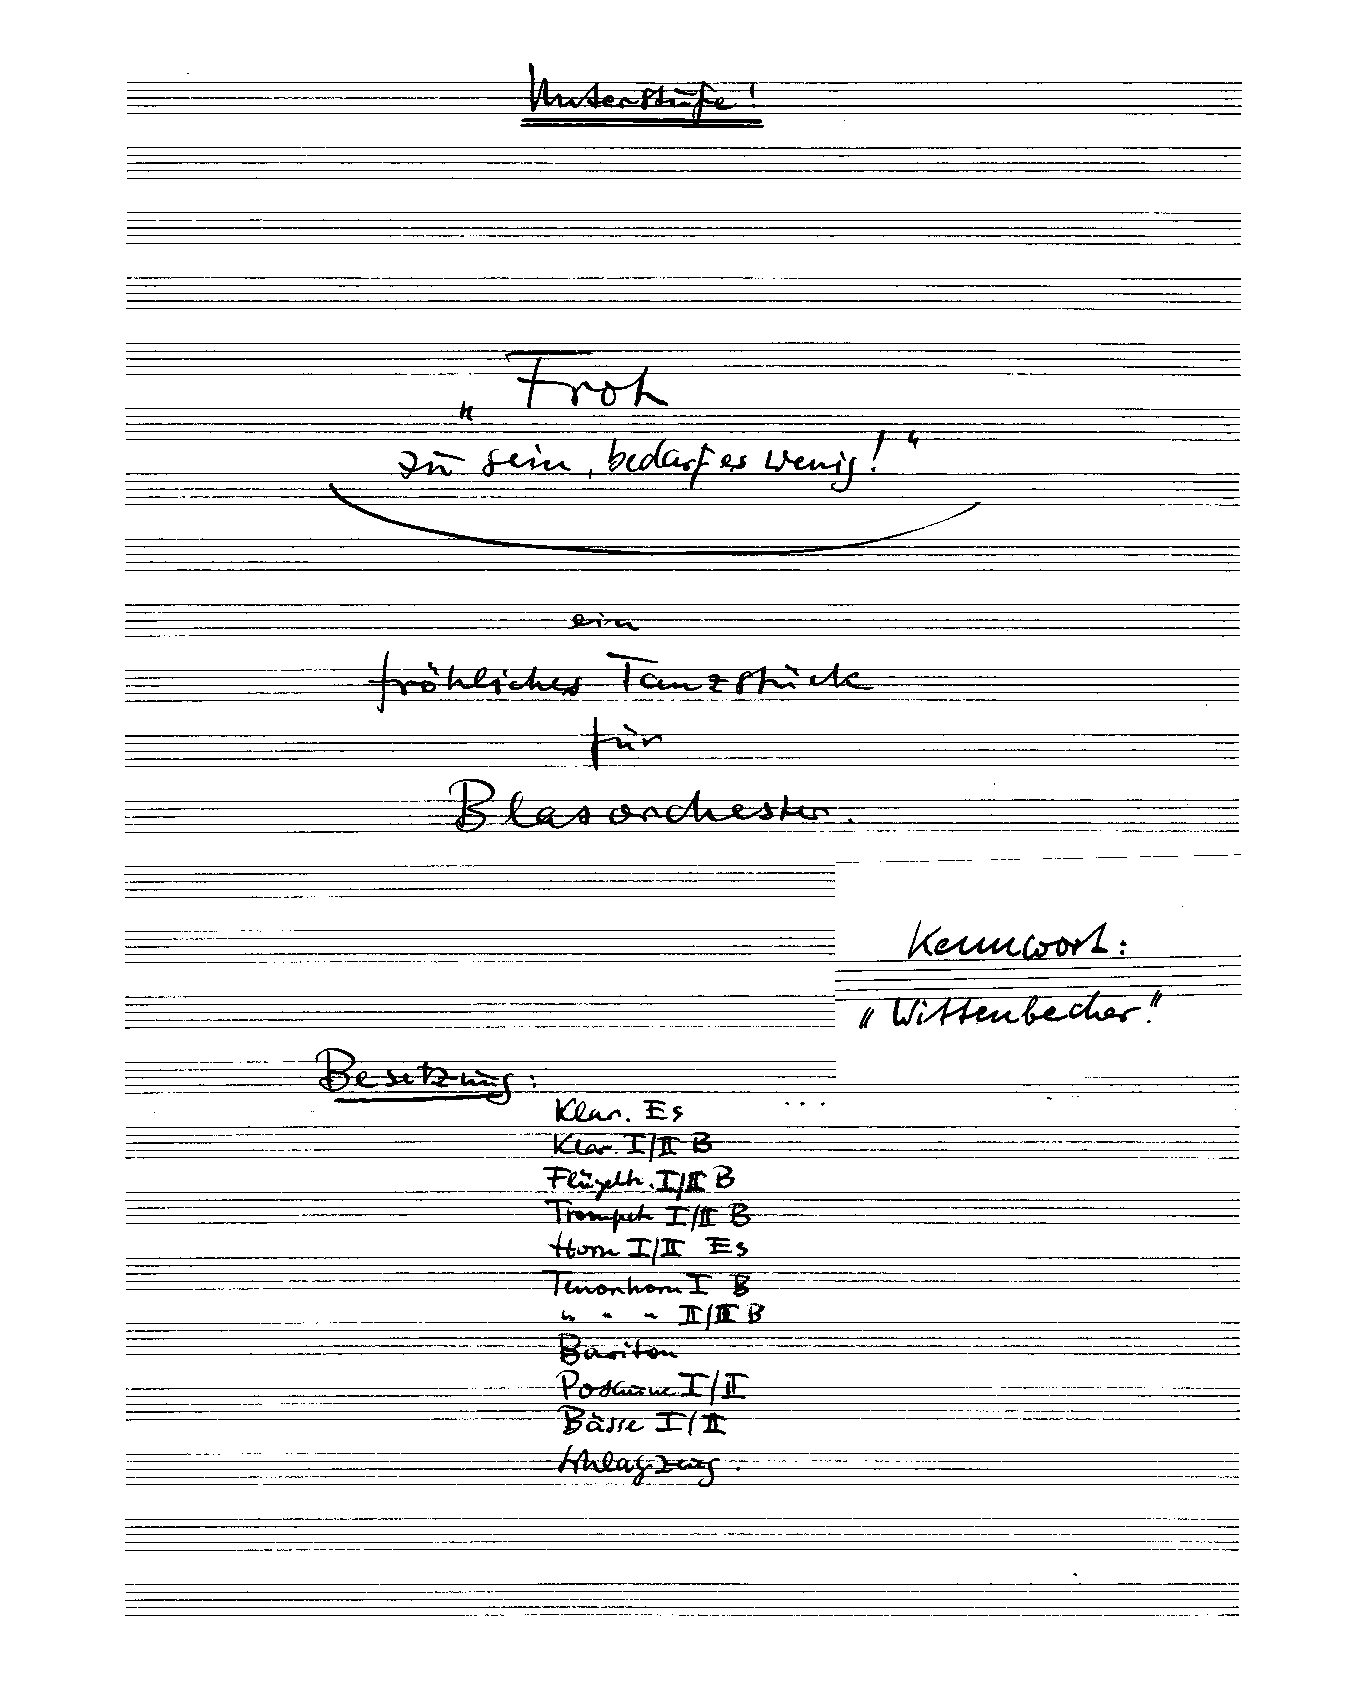 Unterstufe!
„Froh
zu sein, bedarf es wenig!“
ein
fröhliches Tanzstück
für
Blasorchester.
Kennwort:
„Wittenbecher“.
Besetzung:
Klar. Es
Klar. I/II B
Flügelh. I/II B
Trompete I/II B
Horn I/II Es
Tenorhorn I B
" " " II/III B
Bariton
Posaune I/II
Bässe I/II
Schlagzeug.